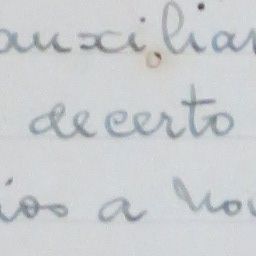 auxiliar
decerto
ios a nov